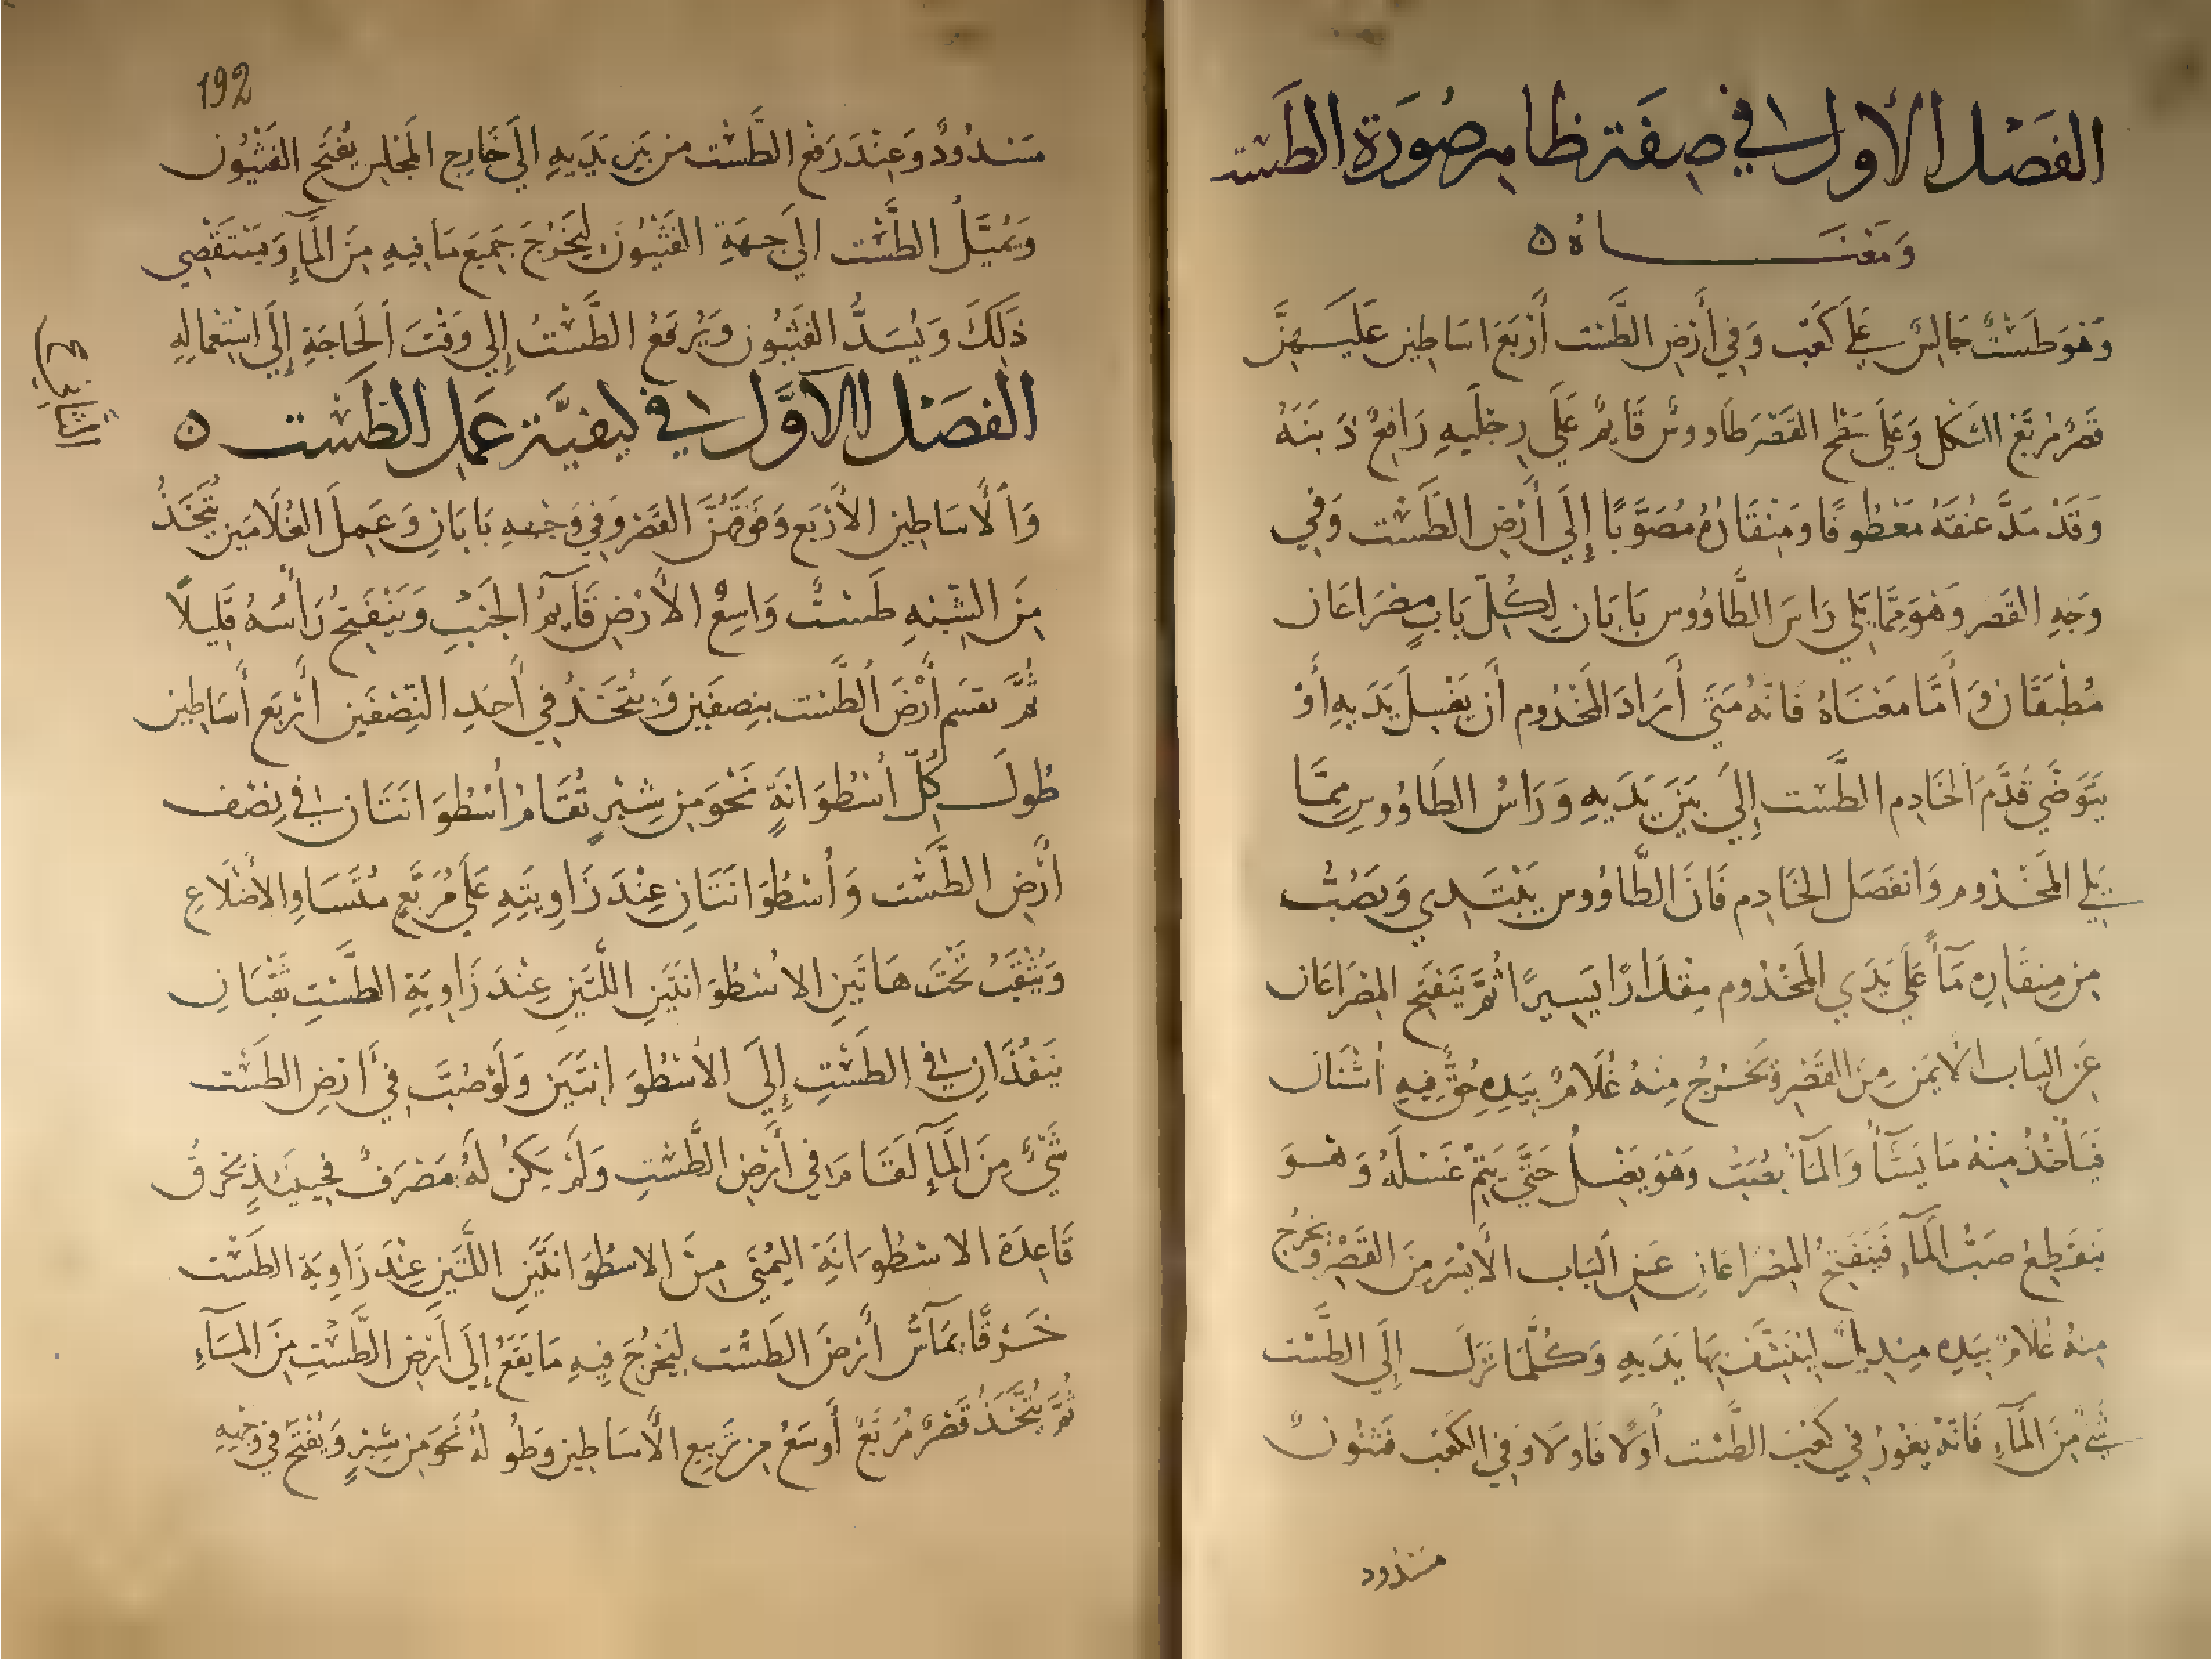 الفَصْل الأول في صِفَة ظاهِر صُورَة الطَست
وَمَعْنَاهُ ٥
وَهُوَ طَسْتٌ جَالِسٌ عَلَى كَعْب وَفي أَرْضِ الطَّسْت أَرْبَعَ اسَاطِين عَلَيهِنَّ
قَصْرٌ مُرَبَّع الشَكل وَعَلَى سَطْح القَصْر طَاووسٌ قَايِمٌ عَلَى رِجْلَيهِ رَافِعٌ ذَنبَهُ
وَقَدْ مَدَّ عُنقَهُ مَعْطُوفًا وَمِنْقَارُهُ مُصَوَّبًا إِلَى أَرْضِ الطَّسْت وَفِي
وَجهِ القَصْر وَهوَ مِمَّا يَلي رَاسَ الطَّاوُوس بَابَان لِكُلّ بَابٍ مِصْرَاعَان
مُطْبَقَان وَأَمَّا مَعْنَاهُ فَانّهُ مَتَى أَرَادَ المَخْدُوم أَن يَغْسِلَ يَدَيهِ أَوْ
يَتَوَضَّي قَدَّمَ الخَادِم الطَّسْت إِلَى بَيْنَ يَدَيهِ وَرَاسُ الطَاوُوسِ مِمَّا
يَلي المَخْذوم وَانفَصَل الخَادِم فَانَ الطَّاوُوس يَبْتَدي وَيَصُبُّ
مِن مِنقَارِه مَآءً عَلَى يَدَي المَخْدُوم مِقْدَارًا يَسِيرًا ثُمَّ يَنفَتِح المِصْرَاعَان
عَن البَاب الأيمَن مِنَ القَصْرِ وَيَخْرُجُ مِنهُ غُلَامٌ بِيَدِهِ حُقٌّ فِيهِ اشنَان
فَيَأخُذُ مِنْهُ مَا يَشَآءُ وَالمَآءُ يَصُبُّ وَهوَ يَغسِلُ حَتَّى يَتِمّ غَسْلَهُ وَهوَ
يَنقَطِعُ صَبُّ المَآءِ فَيَنفَتِحُ المِصْرَاعَانِ عَنِ البَاب الأَيْسَر مِنَ القَصْرِ وَيَخرُجُ
مِنهُ غُلَامٌ بِيَدِه مِنديلٌ ليَنَشّف بِهَا يَدَيهِ وَكُلَّمَا نَزلَ إِلَى الطَّسْت
شَيْءٌ مِنَ المَآءِ فَانّهُ يَغُورُ في كَعْب الطَّسْت أَولًا فَاولًا وَفي الكَعْب فَثيُونٌ
مسْدُود
192
مَسْدُودٌ وَعِنْدَ رَفْعِ الطَّسْت مِن بَيْن يَدَيهِ الَى خَارِج المَجْلِس يُفْتَح الفَثْيُون
وَيُمَيَّلُ الطَّسْت الَى جِهَةِ الفَثْيُون لِيَخْرُجَ جَمِيع مَا فِيهِ مِنَ المَآءِ وَيَسْتَقْصِي
ذَلِكَ وَيُسَدُّ الفَثيُون وَيُرفَعُ الطَّسْتُ إِلَى وَقْتَ الحَاجَةِ إِلَى اسْتِعْمَالِهِ
الفصْل الأوَّل في كيفيَّة عَمَل الطَسْت ٥
وَالأسَاطِين الأَرْبَع وَفَوْقَهُنَّ القَصْر وَفي وَجْهِهِ بَابَانِ وَعَمِل الغُلَامَيْن يُتَّخَذُ
مِنَ الشَبَهِ طَسْتٌ وَاسِعُ الأَرْض قَآيِمُ الجَنْبِ وَيَنْفَتِحُ رَأْسُهُ قَلِيلاً
ثُمَّ تقسَم أَرْضَ الطَّسْت بنِصفَيْن وَيُتَّخَذُ في أَحَدِ النّصْفَين أَرْبَع أَسَاطِين
طُولَ كُلّ أُسْطُوَانَةٍ نَحْوَ مِن شِبْرٍ تُقَامُ أُسْطُوَانَتَانِ في نِصْف
أَرْضِ الطَّسْت وَأُسْطُوَانَتَانِ عِنْدَ زَاوِيَتِهِ عَلَى مُرَبَّعٍ مُتَسَاوِ الأضْلَاعِ
وَيُثْقَبُ تَحْتَ هَاتَينِ الاسْطُوَانَتَينِ اللّتَينِ عِنْدَ زَاوِيَةِ الطَّسْتِ ثَقْبَانِ
يَنفُذَانِ في الطَسْتِ إِلَى الأُسْطُوَانَتَيَن وَلَوْ صُبَّ فِي أَرضِ الطَسْت
شَيْءٌ مِنَ المَآءِ لَقَامَ في أَرْضِ الطَّسْتِ وَلَمْ يَكُنْ لَهُ مَصْرَفٌ فحِينَيذٍ يخرقُ
قَاعِدَة الاسْطُوَانَةِ اليُمْنَى مِنَ الاسْطُوَانَتَيْنِ اللَّتَينِ عِنْدَ زَاوِيَة الطَسْت
خَرْقًا يمَآسُّ أَرْضَ الطَسْت لِيَخْرُجَ فِيهِ مَا يَقَعُ إِلَى أَرْضِ الطَّسْتِ مِنَ المَآءِ
ثُمَّ يُتَّخَذُ قَصْرٌ مُرَبَّعٌ أَوسَعُ مِن تَربِيعِ الأَسَاطِين وَطُولُهُ نَحْوَ مِن شِبرٍ وَيُفتَح في وَجْهِهِ